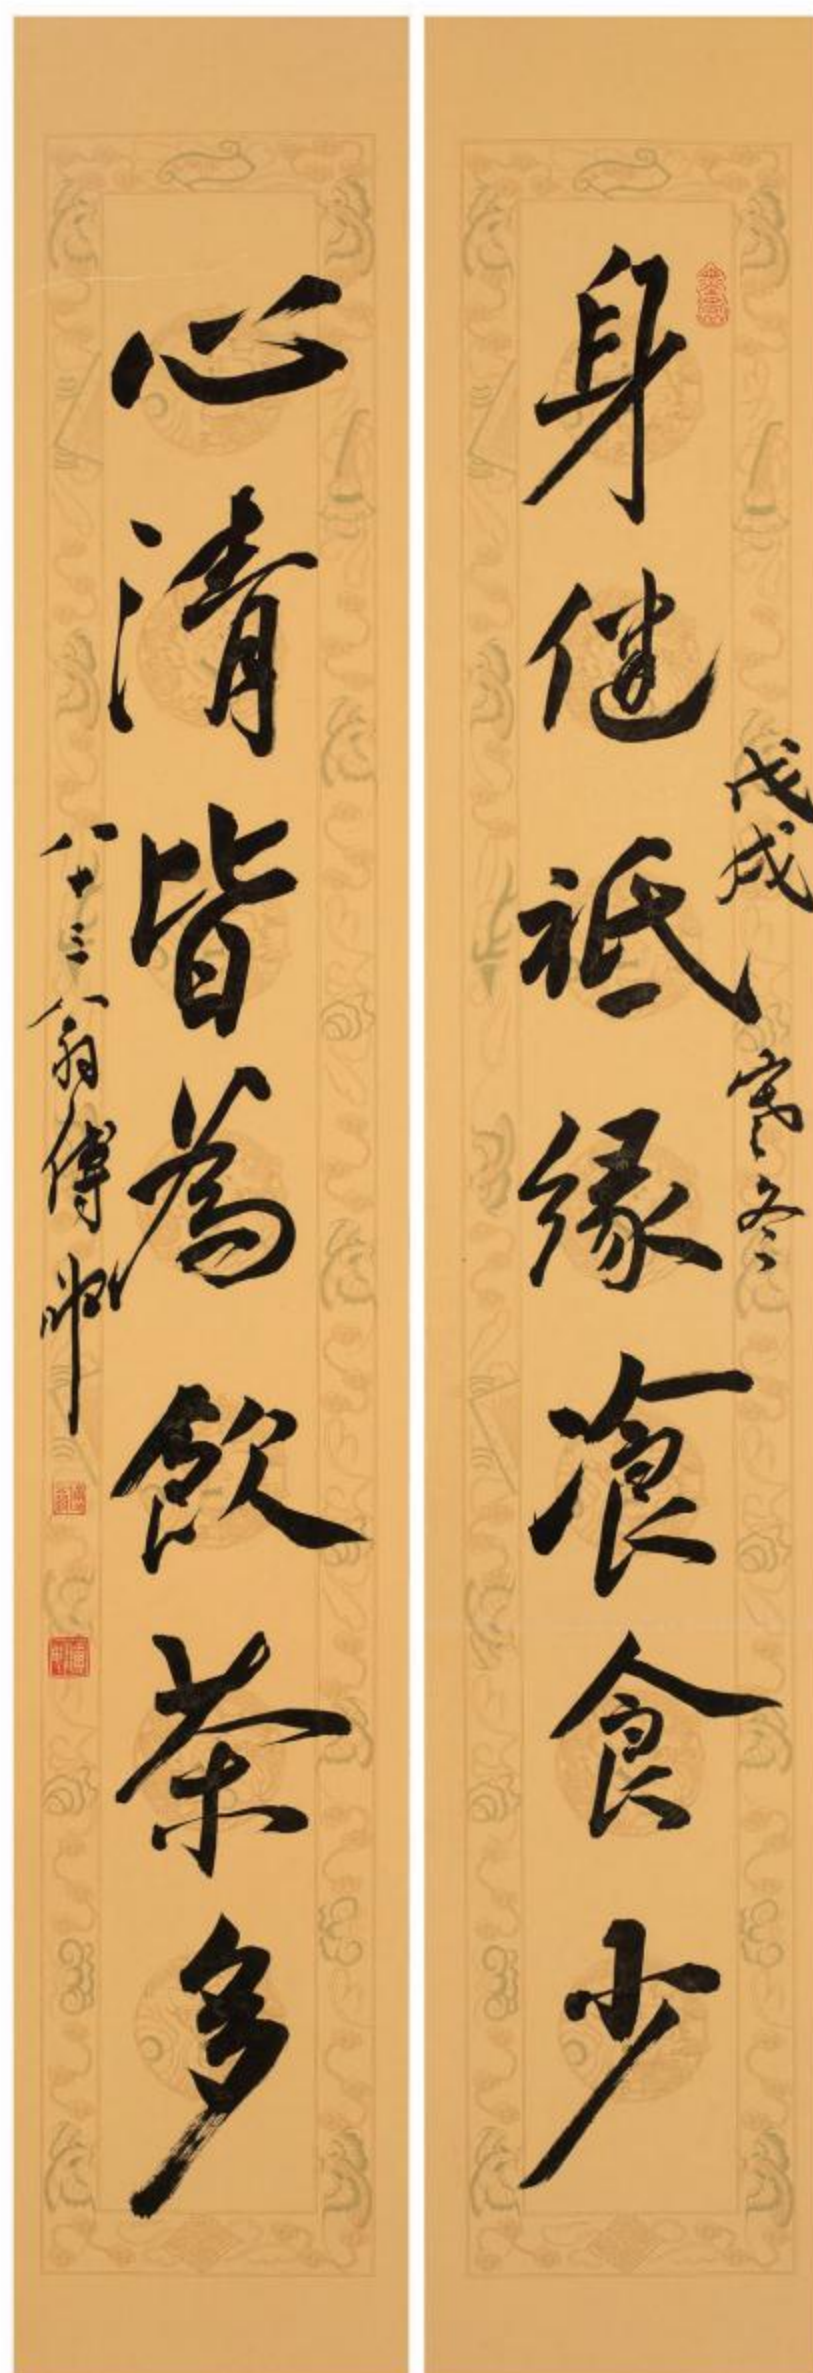 身健祗緣飡食少
戊戌寒冬
心清皆為飲茶多
八十三翁傅申